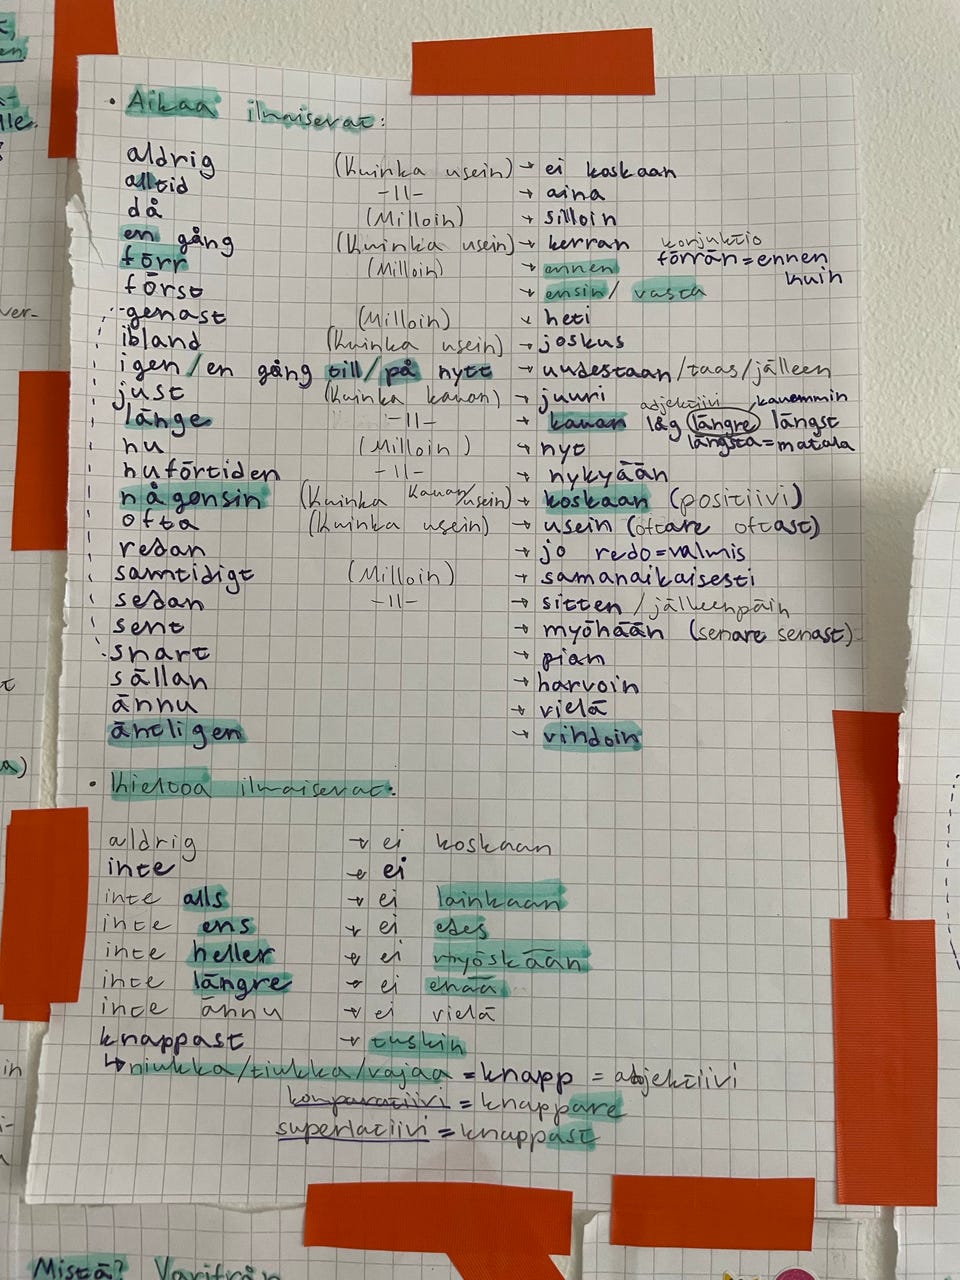 • Aikaa ilmaiserat:
aldrig (Kuinka usein) → ei koskaan
alltid -11- → aina
då (Milloin) → silloin
en gång (Kuinka usein) → kerran konjuktio
förr (Milloin) → ennen förrän = ennen kuin
först → ensin / vasta
genast (Milloin) → heti
ibland (Kuinka usein) → joskus
igen / en gång till / på nytt → uudestaan / taas / jälleen
just (Kuinka kauan) → juuri adjektiivi kauemmin
länge -11- → kauan låg längre längst
nu (Milloin) → nyt längsta = matala
nuförtiden -11- → nykyään
någonsin (Kuinka kauan/usein) → koskaan (positiivi)
ofta (Kuinka usein) → usein (oftare oftast)
redan → jo redo = valmis
samtidigt (Milloin) → samanaikaisesti
sedan -11- → sitten / jälleenpäin
sent → myöhään (senare senast)
snart → pian
sällan → harvoin
ännu → vielä
äntligen → vihdoin
• Kieltoa ilmaiserat:
aldrig → ei koskaan
inte → ei
inte alls → ei lainkaan
inte ens → ei edes
inte heller → ei myöskään
inte längre → ei enää
inte ännu → ei vielä
knappast → tuskin
↳ niukka / tiukka / vajaa = knapp = adjektiivi
komparatiivi = knappare
superlatiivi = knappast
Mistä? Varifrån